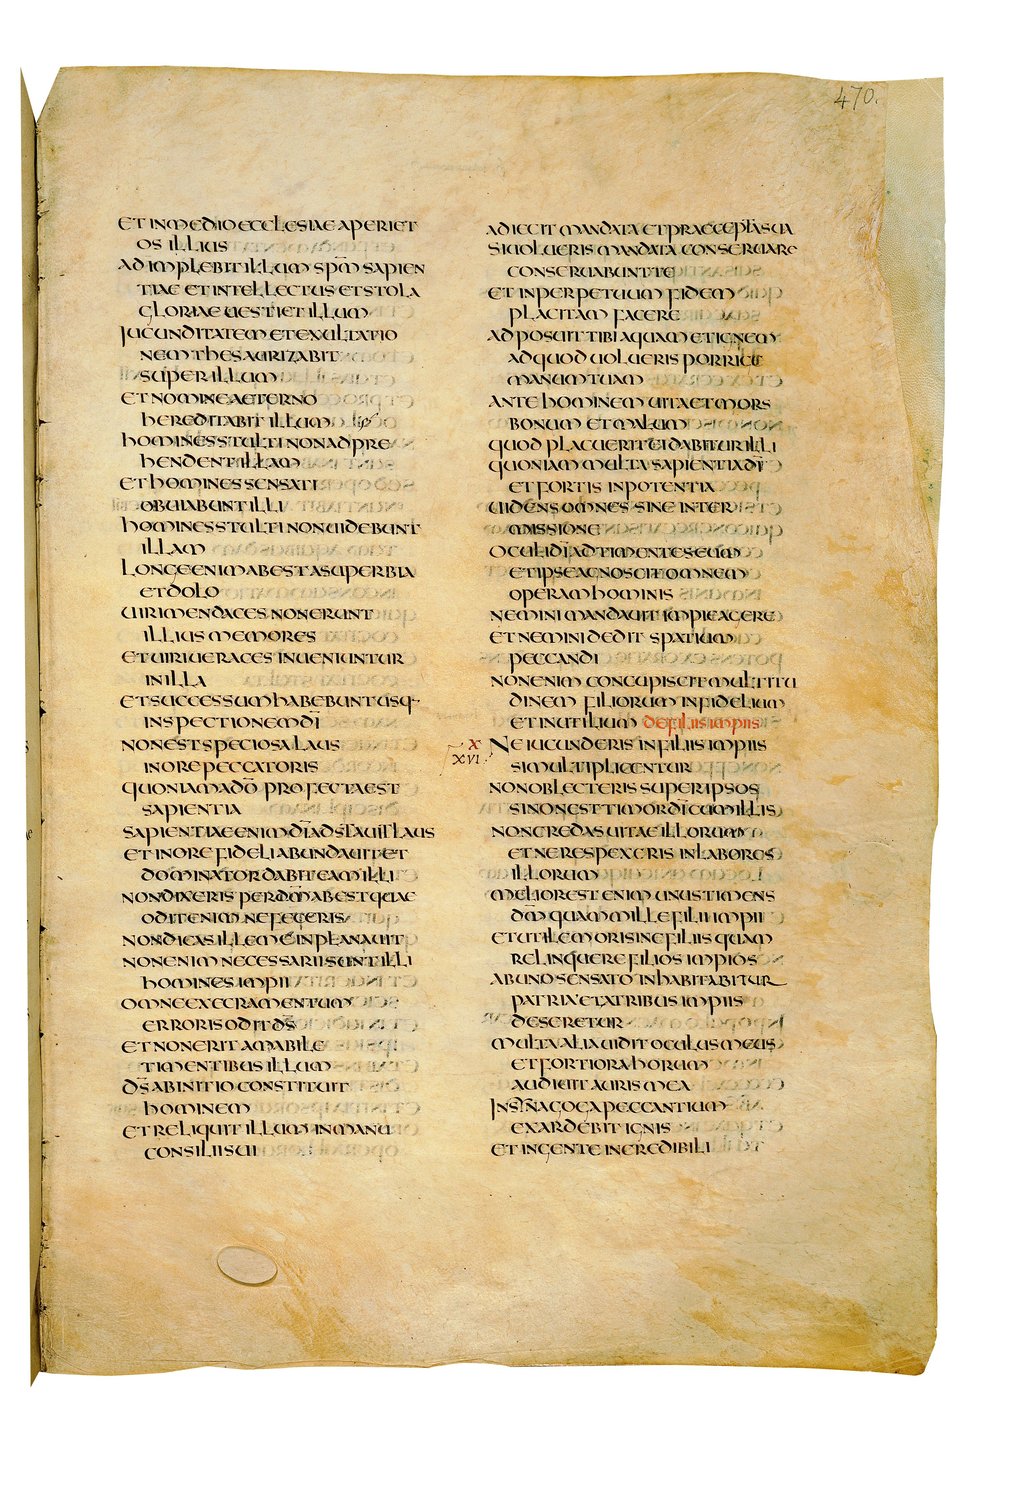 470.
ET IN MEDIO ECCLESIAE APERIET
OS ILLIUS
ADIMPLEBIT ILLUM SPM̄ SAPIEN
TIAE ET INTELLECTUS ET STOLA
GLORIAE UESTIET ILLUM
IUCUNDITATEM ET EXULTATIO
NEM THESAURIZABIT
SUPER ILLUM
ET NOMINE AETERNO
HEREDITABIT ILLUM
HOMINES STULTI NON ADPRE
HENDENT ILLAM
ET HOMINES SENSATI
OBUIABUNT ILLI
HOMINES STULTI NON UIDEBUNT
ILLAM
LONGE ENIM ABEST A SUPERBIA
ET DOLO
UIRI MENDACES NON ERUNT
ILLIUS MEMORES
ET UIRI UERACES INUENIUNTUR
IN ILLA
ET SUCCESSUM HABEBUNT USQ·
INSPECTIONEM DĪ
NON EST SPECIOSA LAUS
IN ORE PECCATORIS
QUONIAM A DŌ PROFECTA EST
SAPIENTIA
SAPIENTIAE ENIM DĪ ADSTAUIT LAUS
ET IN ORE FIDELI ABUNDAUIT ET
DOMINATOR DABIT EAM ILLI
NON DIXERIS PER DM̄ ABEST QUAE
ODIT ENIM NE FECERIS
NON DICAS ILLE ME INPLANAUIT
NON ENIM NECESSARII SUNT ILLI
HOMINES IMPII
OMNE EXECRAMENTUM
ERRORIS ODIT DS̄
ET NON ERIT AMABILE
TIMENTIBUS ILLUM
DS̄ AB INITIO CONSTITUIT
HOMINEM
ET RELIQUIT ILLUM IN MANU
CONSILII SUI
ADIECIT MANDATA ET PRAECEPTA SUA
SI UOLUERIS MANDATA CONSERUARE
CONSERUABUNT TE
ET IN PERPETUUM FIDEM
PLACITAM FACERE
ADPOSUIT TIBI AQUAM ET IGNEM
AD QUOD UOLUERIS PORRIGE
MANUM TUAM
ANTE HOMINEM UITA ET MORS
BONUM ET MALUM
QUOD PLACUERIT EI DABITUR ILLI
QUONIAM MULTA SAPIENTIA DĪ
ET FORTIS IN POTENTIA
UIDENS OMNES SINE INTER
MISSIONE
OCULI DĪ AD TIMENTES EUM
ET IPSE AGNOSCIT OMNEM
OPERAM HOMINIS
NEMINI MANDAUIT IMPIE AGERE
ET NEMINI DEDIT SPATIUM
PECCANDI
NON ENIM CONCUPISCIT MULTITU
DINEM FILIORUM INFIDELIUM
ET INUTILIUM DE FILIIS IMPIIS
X
XVI
NE IUCUNDERIS IN FILIIS IMPIIS
SI MULTIPLICENTUR
NON OBLECTERIS SUPER IPSOS
SI NON EST TIMOR DĪ CUM ILLIS
NON CREDAS UITAE ILLORUM
ET NE RESPEXERIS IN LABORES
ILLORUM
MELIOR EST ENIM UNUS TIMENS
DM̄ QUAM MILLE FILII IMPII
ET UTILE MORI SINE FILIIS QUAM
RELINQUERE FILIOS IMPIOS
AB UNO SENSATO INHABITABITUR
PATRIA ET A TRIBUS IMPIIS
DESERETUR
MULTA ALIA UIDIT OCULUS MEUS
ET FORTIORA HORUM
AUDIUIT AURIS MEA
IN SYNAGOGA PECCANTIUM
EXARDEBIT IGNIS
ET IN GENTE INCREDIBILI